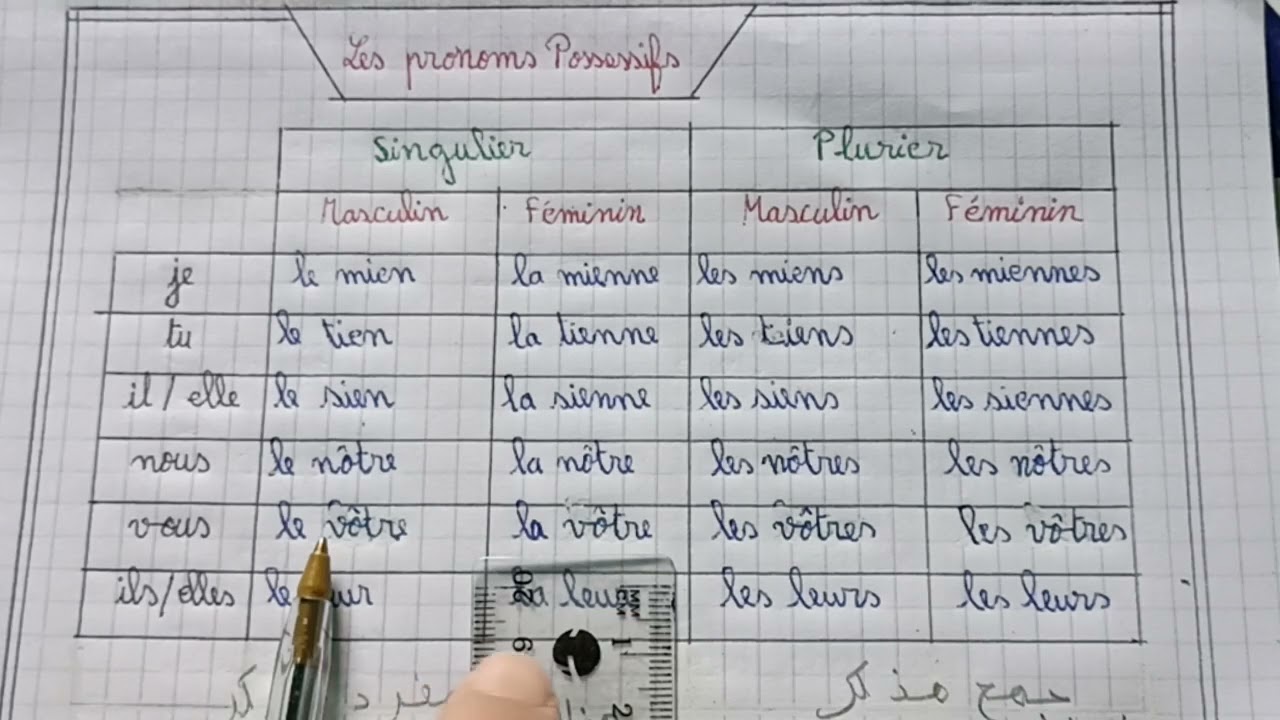 Les pronoms Possessifs
Singulier Plurier
Masculin Féminin Masculin Féminin
je le mien la mienne les miens les miennes
tu le tien la tienne les tiens les tiennes
il / elle le sien la sienne les siens les siennes
nous le nôtre la nôtre les nôtres les nôtres
vous le vôtre la vôtre les vôtres les vôtres
ils/elles la leur les leurs les leurs
جمع مذكر